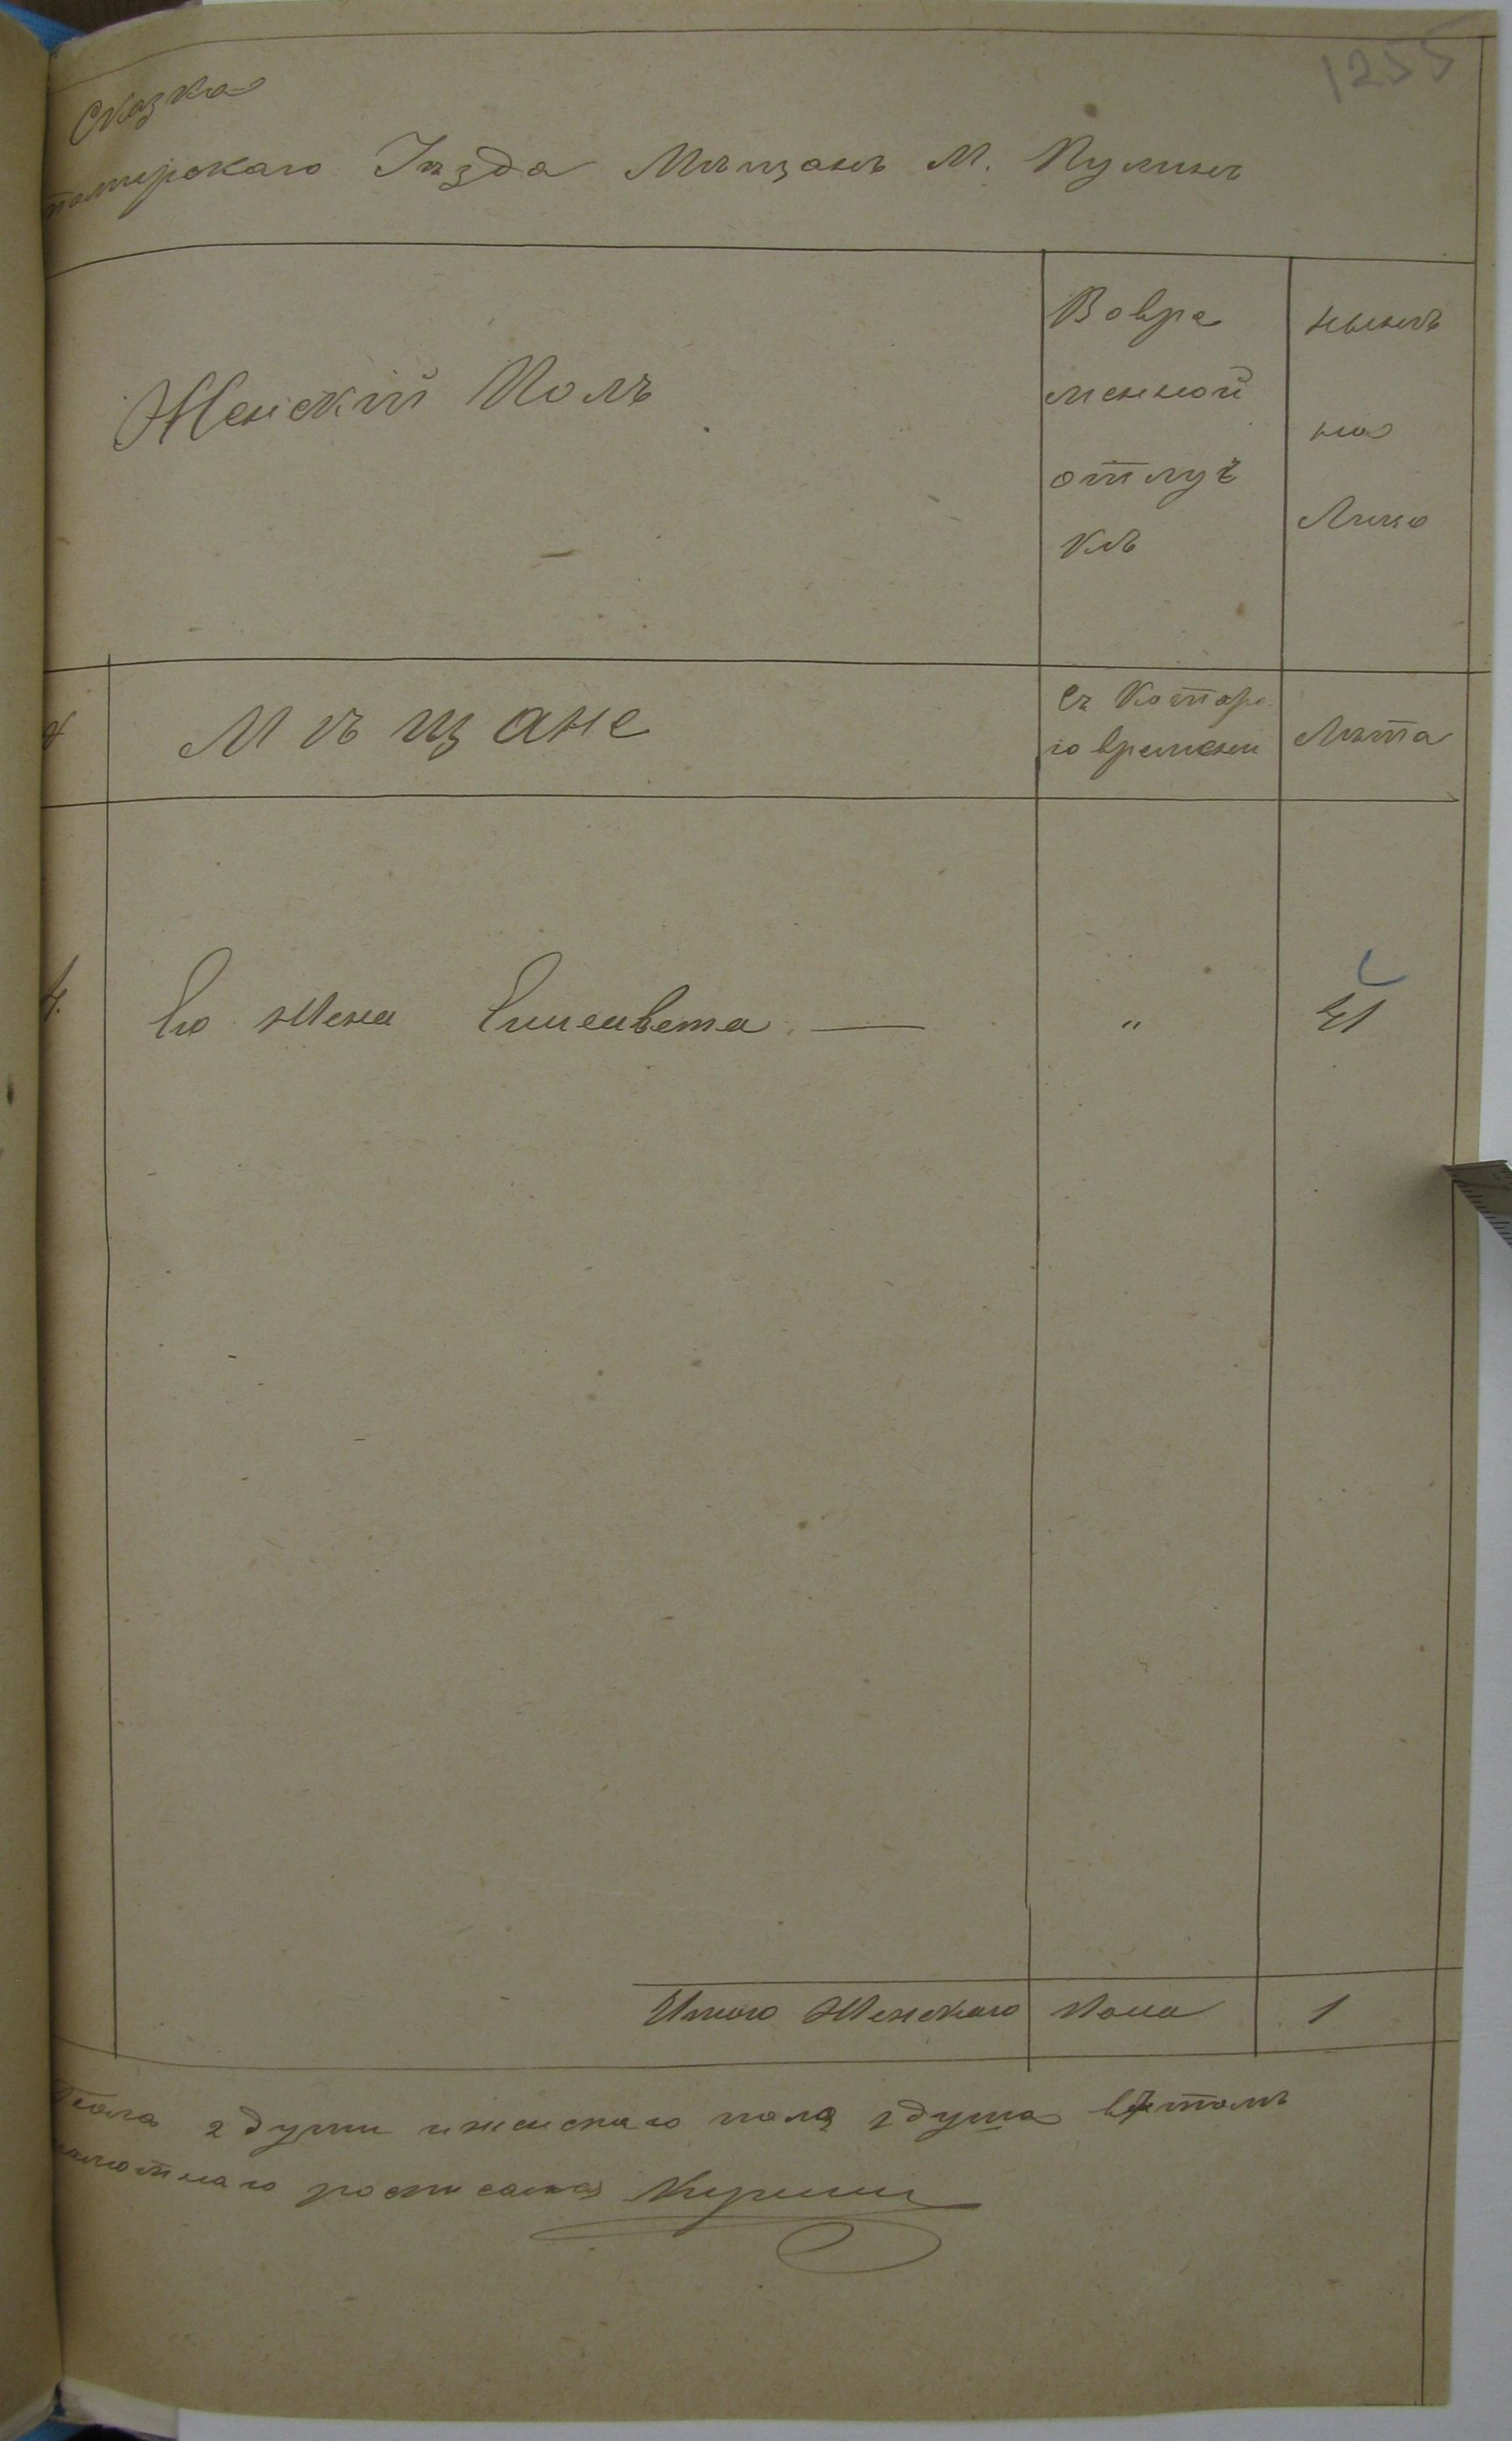 1255
Сказка
томирскаго Уѣзда Мѣщанъ М. Кулинъ
Женскій Полъ
Вовре
менной
отлуч
кѣ
нынѣ
на
Лицо
Мѣщане
съ Которо
го времени
Лѣта
4.
Его жена Елисавета —
"
41
Итого Женскаго Пола 1
пола 2 души и женскаго пола 1 душа вътомъ
росписался